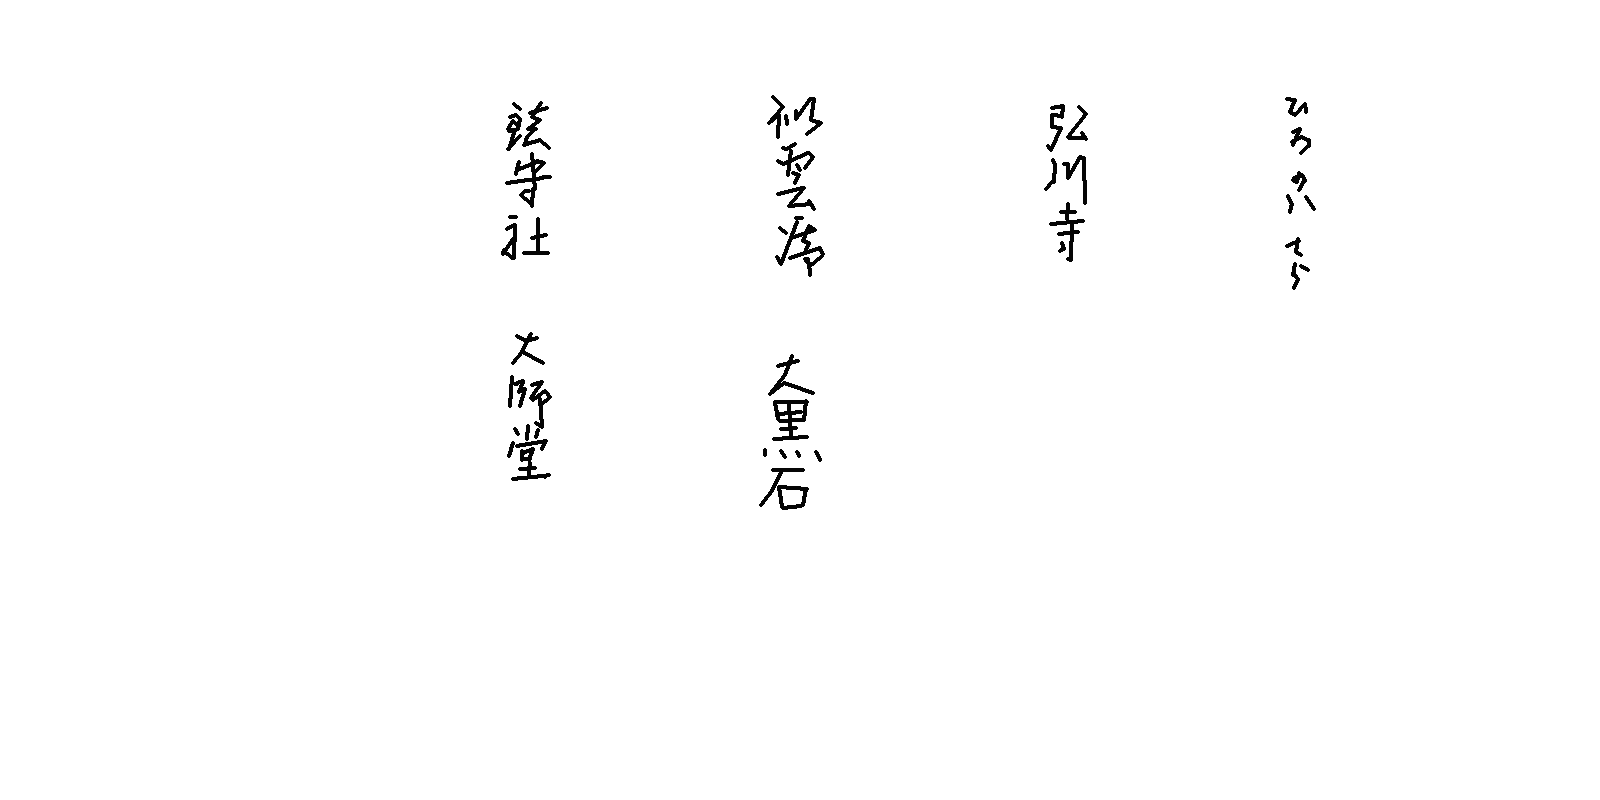 ひろかハてら
弘川寺
似雲 大黒石
鎮守社 大師堂